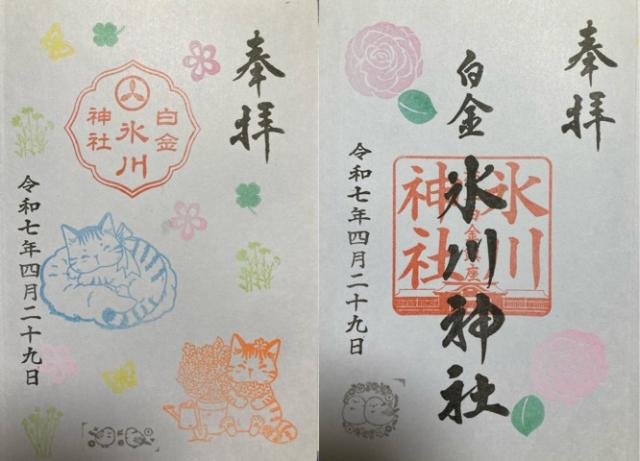 奉拝
白金
氷川
神社
令和七年四月二十九日
奉拝
白金 氷川神社
氷川
神社
令和七年四月二十九日